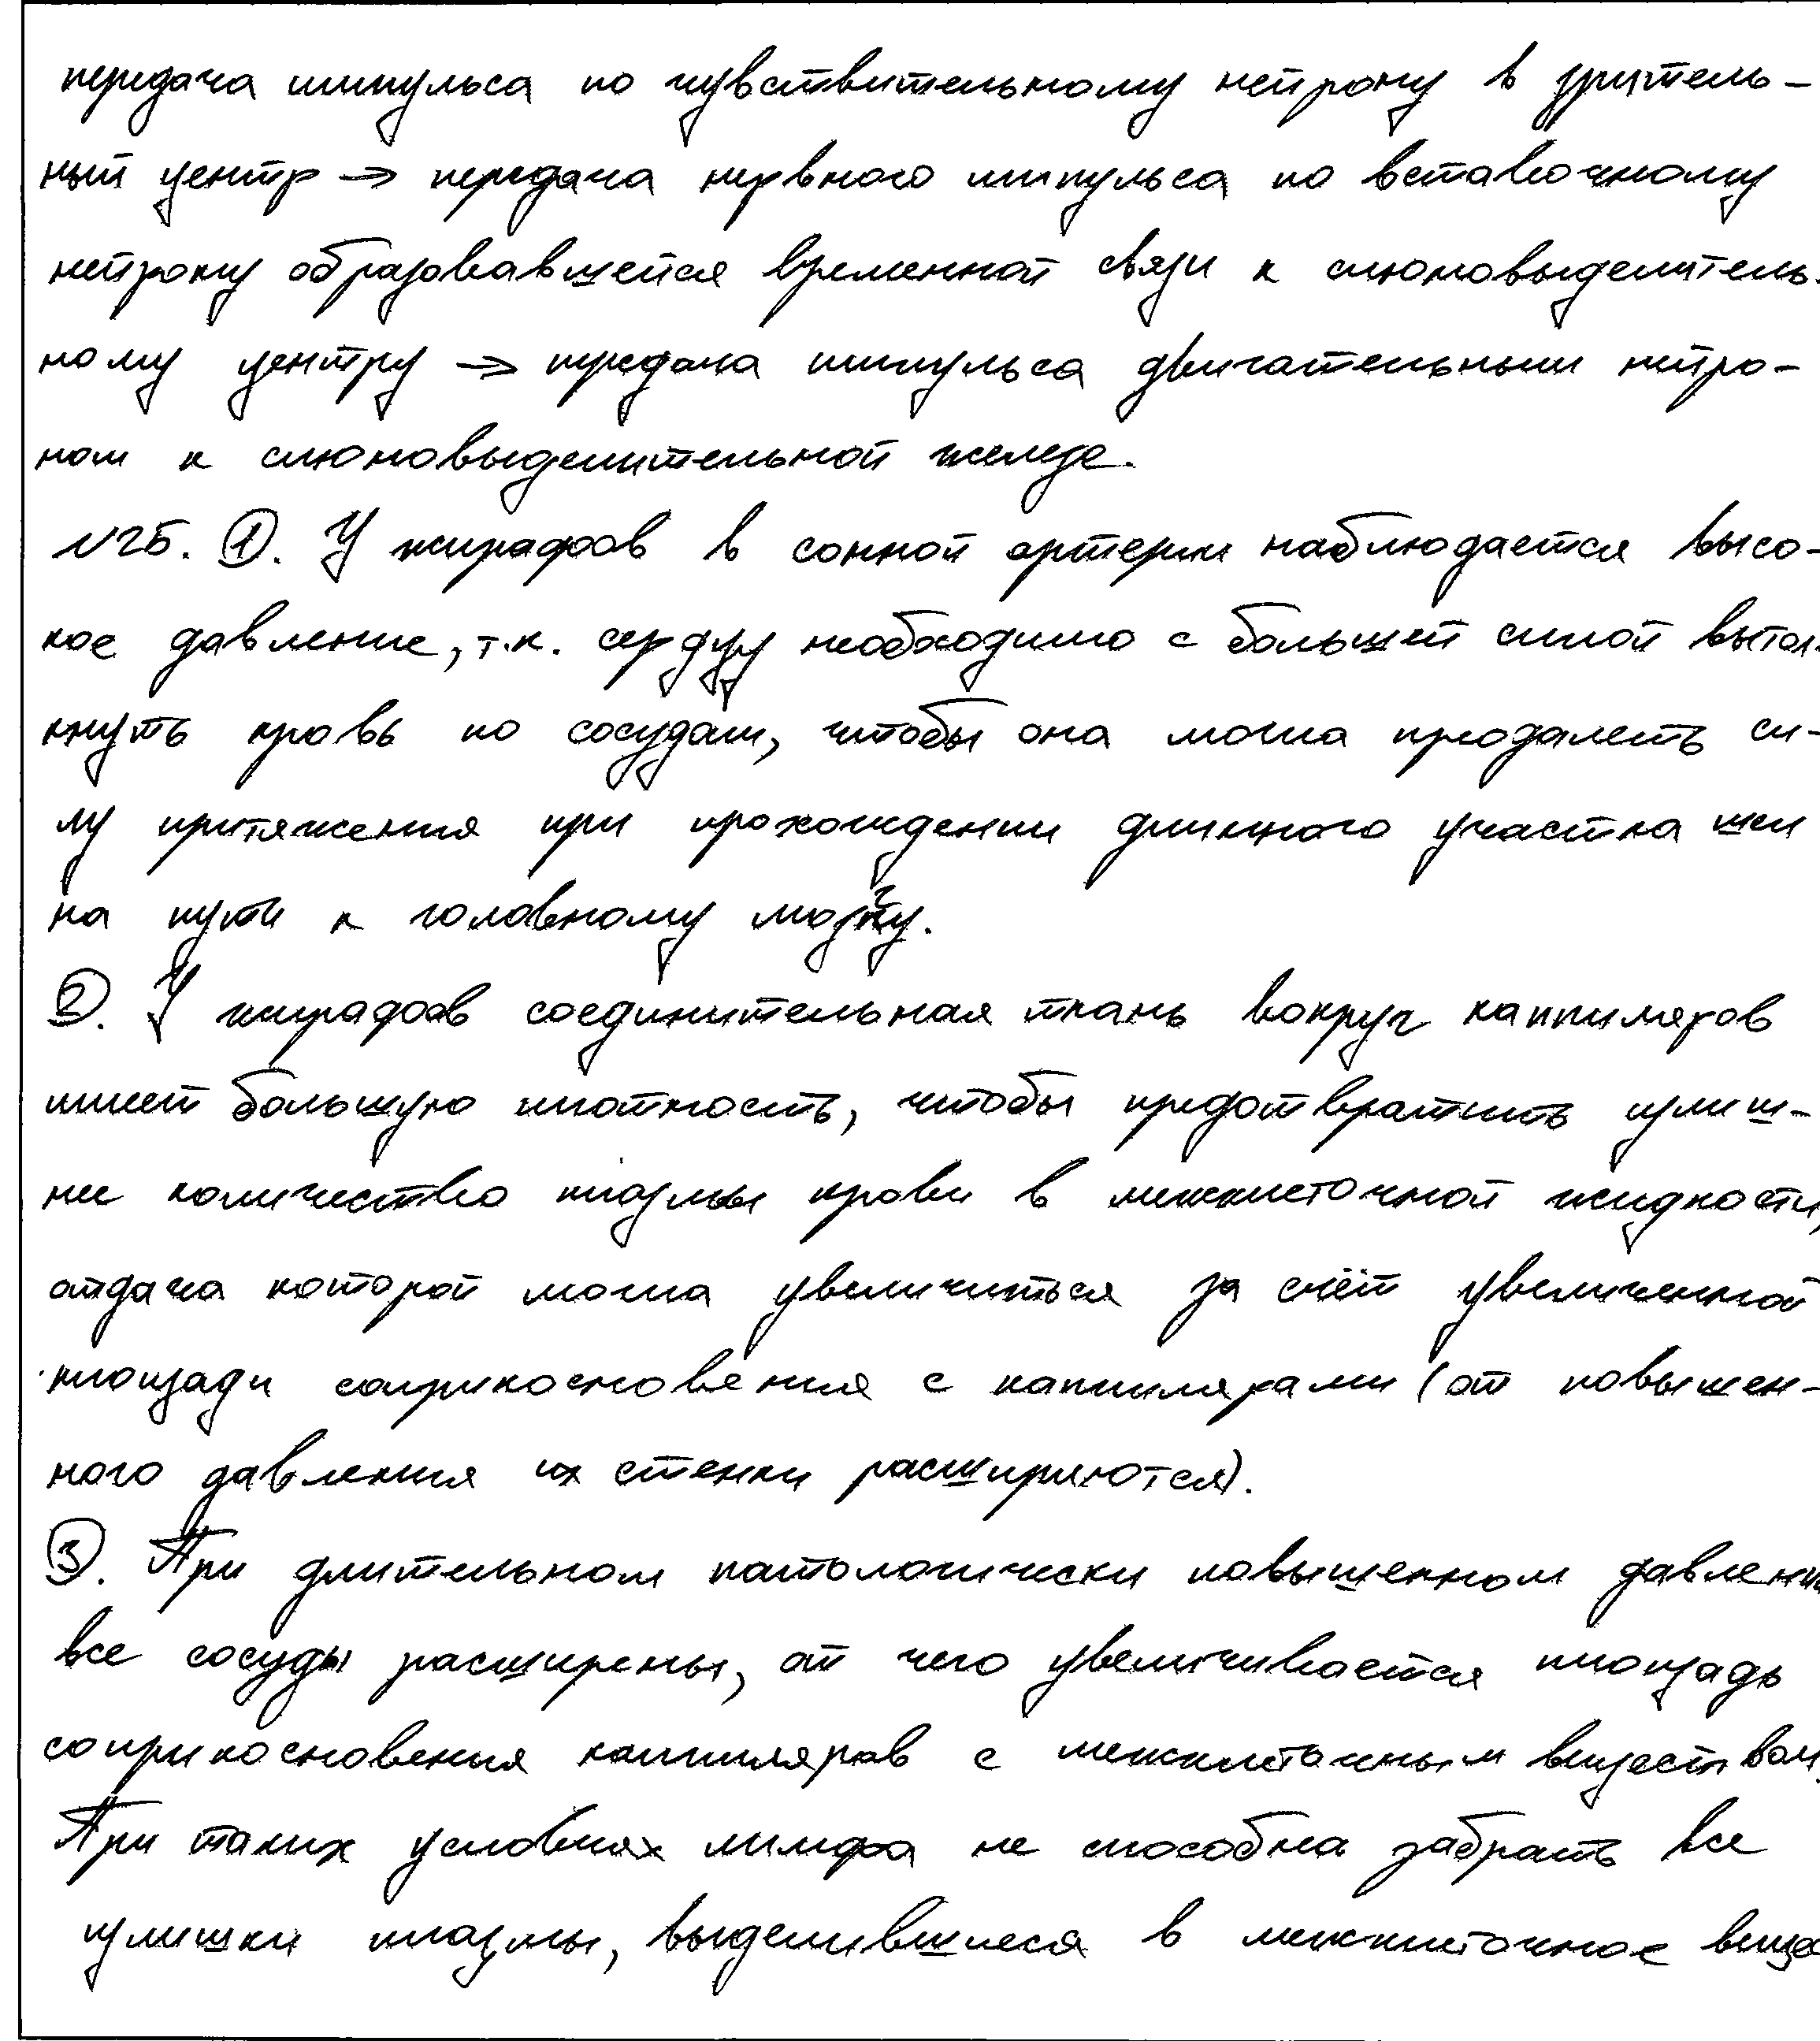 передача импульса по чувствительному нейрону в зритель-
ный центр → передача нервного импульса по вставочному
нейрону образовавшейся временной связи к слюновыделитель-
ному центру → передача импульса двигательным нейро-
ном к слюновыделительной железе.
№25. ①. У жирафов в сонной артерии наблюдается высо-
кое давление, т.к. сердцу необходимо с большей силой вытол-
кнуть кровь по сосудам, чтобы она могла преодалеть си-
лу притяжения при прохождении длинного участка шеи
на пути к головному мозгу.
②. У жирафов соединительная ткань вокруг каппиляров
имеет большую плотность, чтобы предотвратить излиш-
нее количество плазмы крови в межклеточной жидкости,
отдача которой могла увеличиться за счёт увеличенной
площади соприкосновения с каппилярами (от повышен-
ного давления их стенки расширяются).
③. При длительном патологически повышенном давлении
все сосуды расширены, от чего увеличивается площадь
соприкосновения каппиляров с межклеточным веществом.
При таких условиях лимфа не способна забрать все
излишки плазмы, выделившиеся в межклеточное веще